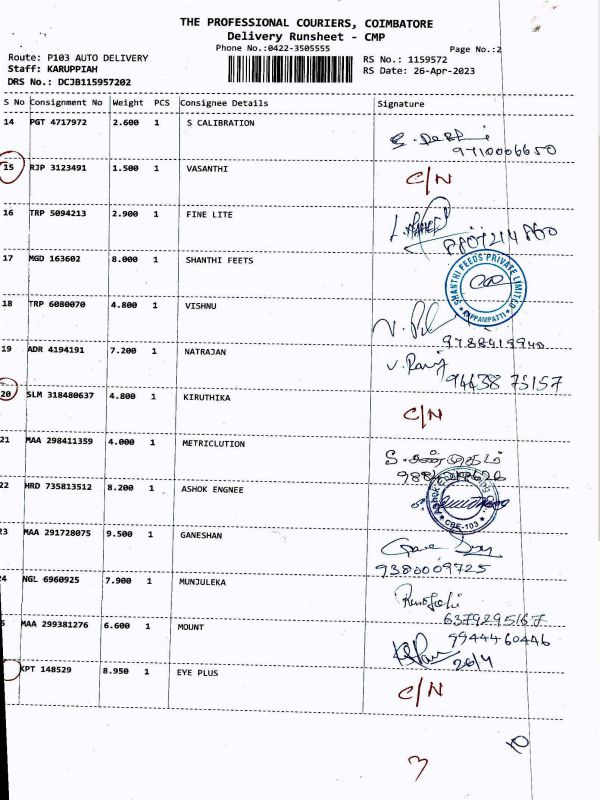 THE PROFESSIONAL COURIERS, COIMBATORE
Delivery Runsheet - CMP
Phone No.:0422-3505555
Page No.:2
Route: P103 AUTO DELIVERY
RS No.: 1159572
Staff: KARUPPIAH
RS Date: 26-Apr-2023
DRS No.: DCJB115957202
S No Consignment No Weight PCS Consignee Details Signature
14 PGT 4717972 2.600 1 S CALIBRATION
9710006650
15 RJP 3123491 1.500 1 VASANTHI C/N
16 TRP 5094213 2.900 1 FINE LITE
17 MGD 163602 8.000 1 SHANTHI FEETS
SHANTHI FEEDS PRIVATE LIMITED
KAPPAMPATTI
18 TRP 6080070 4.800 1 VISHNU
9788419940
19 ADR 4194191 7.200 1 NATRAJAN V. Ravi
94438 75157
20 SLM 318480637 4.800 1 KIRUTHIKA C/N
21 MAA 298411359 4.000 1 METRICLUTION
22 HRD 735813512 8.200 1 ASHOK ENGNEE
CBE-103
23 MAA 291728075 9.500 1 GANESHAN
9380009725
24 NGL 6960925 7.900 1 MUNJULEKA
6379295167
5 MAA 299381276 6.600 1 MOUNT 9944460446
26/4
KPT 148529 8.950 1 EYE PLUS C/N
3
10